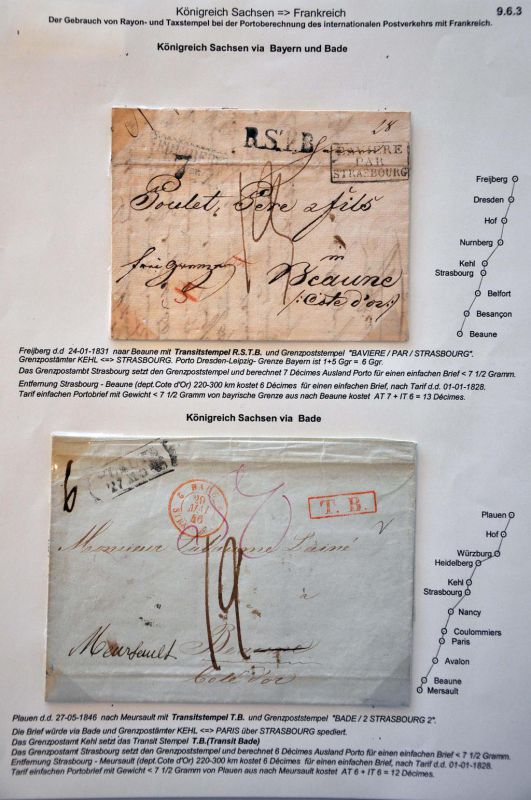 Königreich Sachsen => Frankreich
9.6.3
Der Gebrauch von Rayon- und Taxstempel bei der Portoberechnung des internationalen Postverkehrs mit Frankreich.
Königreich Sachsen via Bayern und Bade
R.S.T.B.
28
BAVIERE
PAR
STRASBOURG
7
Poulet, Père & fils
in
frei Grenze
Beaune
(Côte d'or)
Freijberg
Dresden
Hof
Nurnberg
Kehl
Strasbourg
Belfort
Besançon
Beaune
Freijberg d.d 24-01-1831 naar Beaune mit Transitstempel R.S.T.B. und Grenzpoststempel "BAVIERE / PAR / STRASBOURG".
Grenzpostämter KEHL <=> STRASBOURG. Porto Dresden-Leipzig- Grenze Bayern ist 1+5 Ggr = 6 Ggr.
Das Grenzpostambt Strasbourg setzt den Grenzpoststempel und berechnet 7 Décimes Ausland Porto für einen einfachen Brief < 7 1/2 Gramm.
Entfernung Strasbourg - Beaune (dept.Cote d'Or) 220-300 km kostet 6 Décimes für einen einfachen Brief, nach Tarif d.d. 01-01-1828.
Tarif einfachen Portobrief mit Gewicht < 7 1/2 Gramm von bayrische Grenze aus nach Beaune kostet AT 7 + IT 6 = 13 Décimes.
Königreich Sachsen via Bade
6
29
MAI
46
T. B.
Monsieur
Meursault
Cote d'or
Plauen
Hof
Würzburg
Heidelberg
Kehl
Strasbourg
Nancy
Coulommiers
Paris
Avalon
Beaune
Mersault
Plauen d.d. 27-05-1846 nach Meursault mit Transitstempel T.B. und Grenzpoststempel "BADE / 2 STRASBOURG 2".
Die Brief würde via Bade und Grenzpostämter KEHL <=> PARIS über STRASBOURG spediert.
Das Grenzpostamt Kehl setzt das Transit Stempel T.B.(Transit Bade)
Das Grenzpostamt Strasbourg setzt den Grenzpoststempel und berechnet 6 Décimes Ausland Porto für einen einfachen Brief < 7 1/2 Gramm.
Entfernung Strasbourg - Meursault (dept.Cote d'Or) 220-300 km kostet 6 Décimes für einen einfachen Brief, nach Tarif d.d. 01-01-1828.
Tarif einfachen Portobrief mit Gewicht < 7 1/2 Gramm von Plauen aus nach Meursault kostet AT 6 + IT 6 = 12 Décimes.